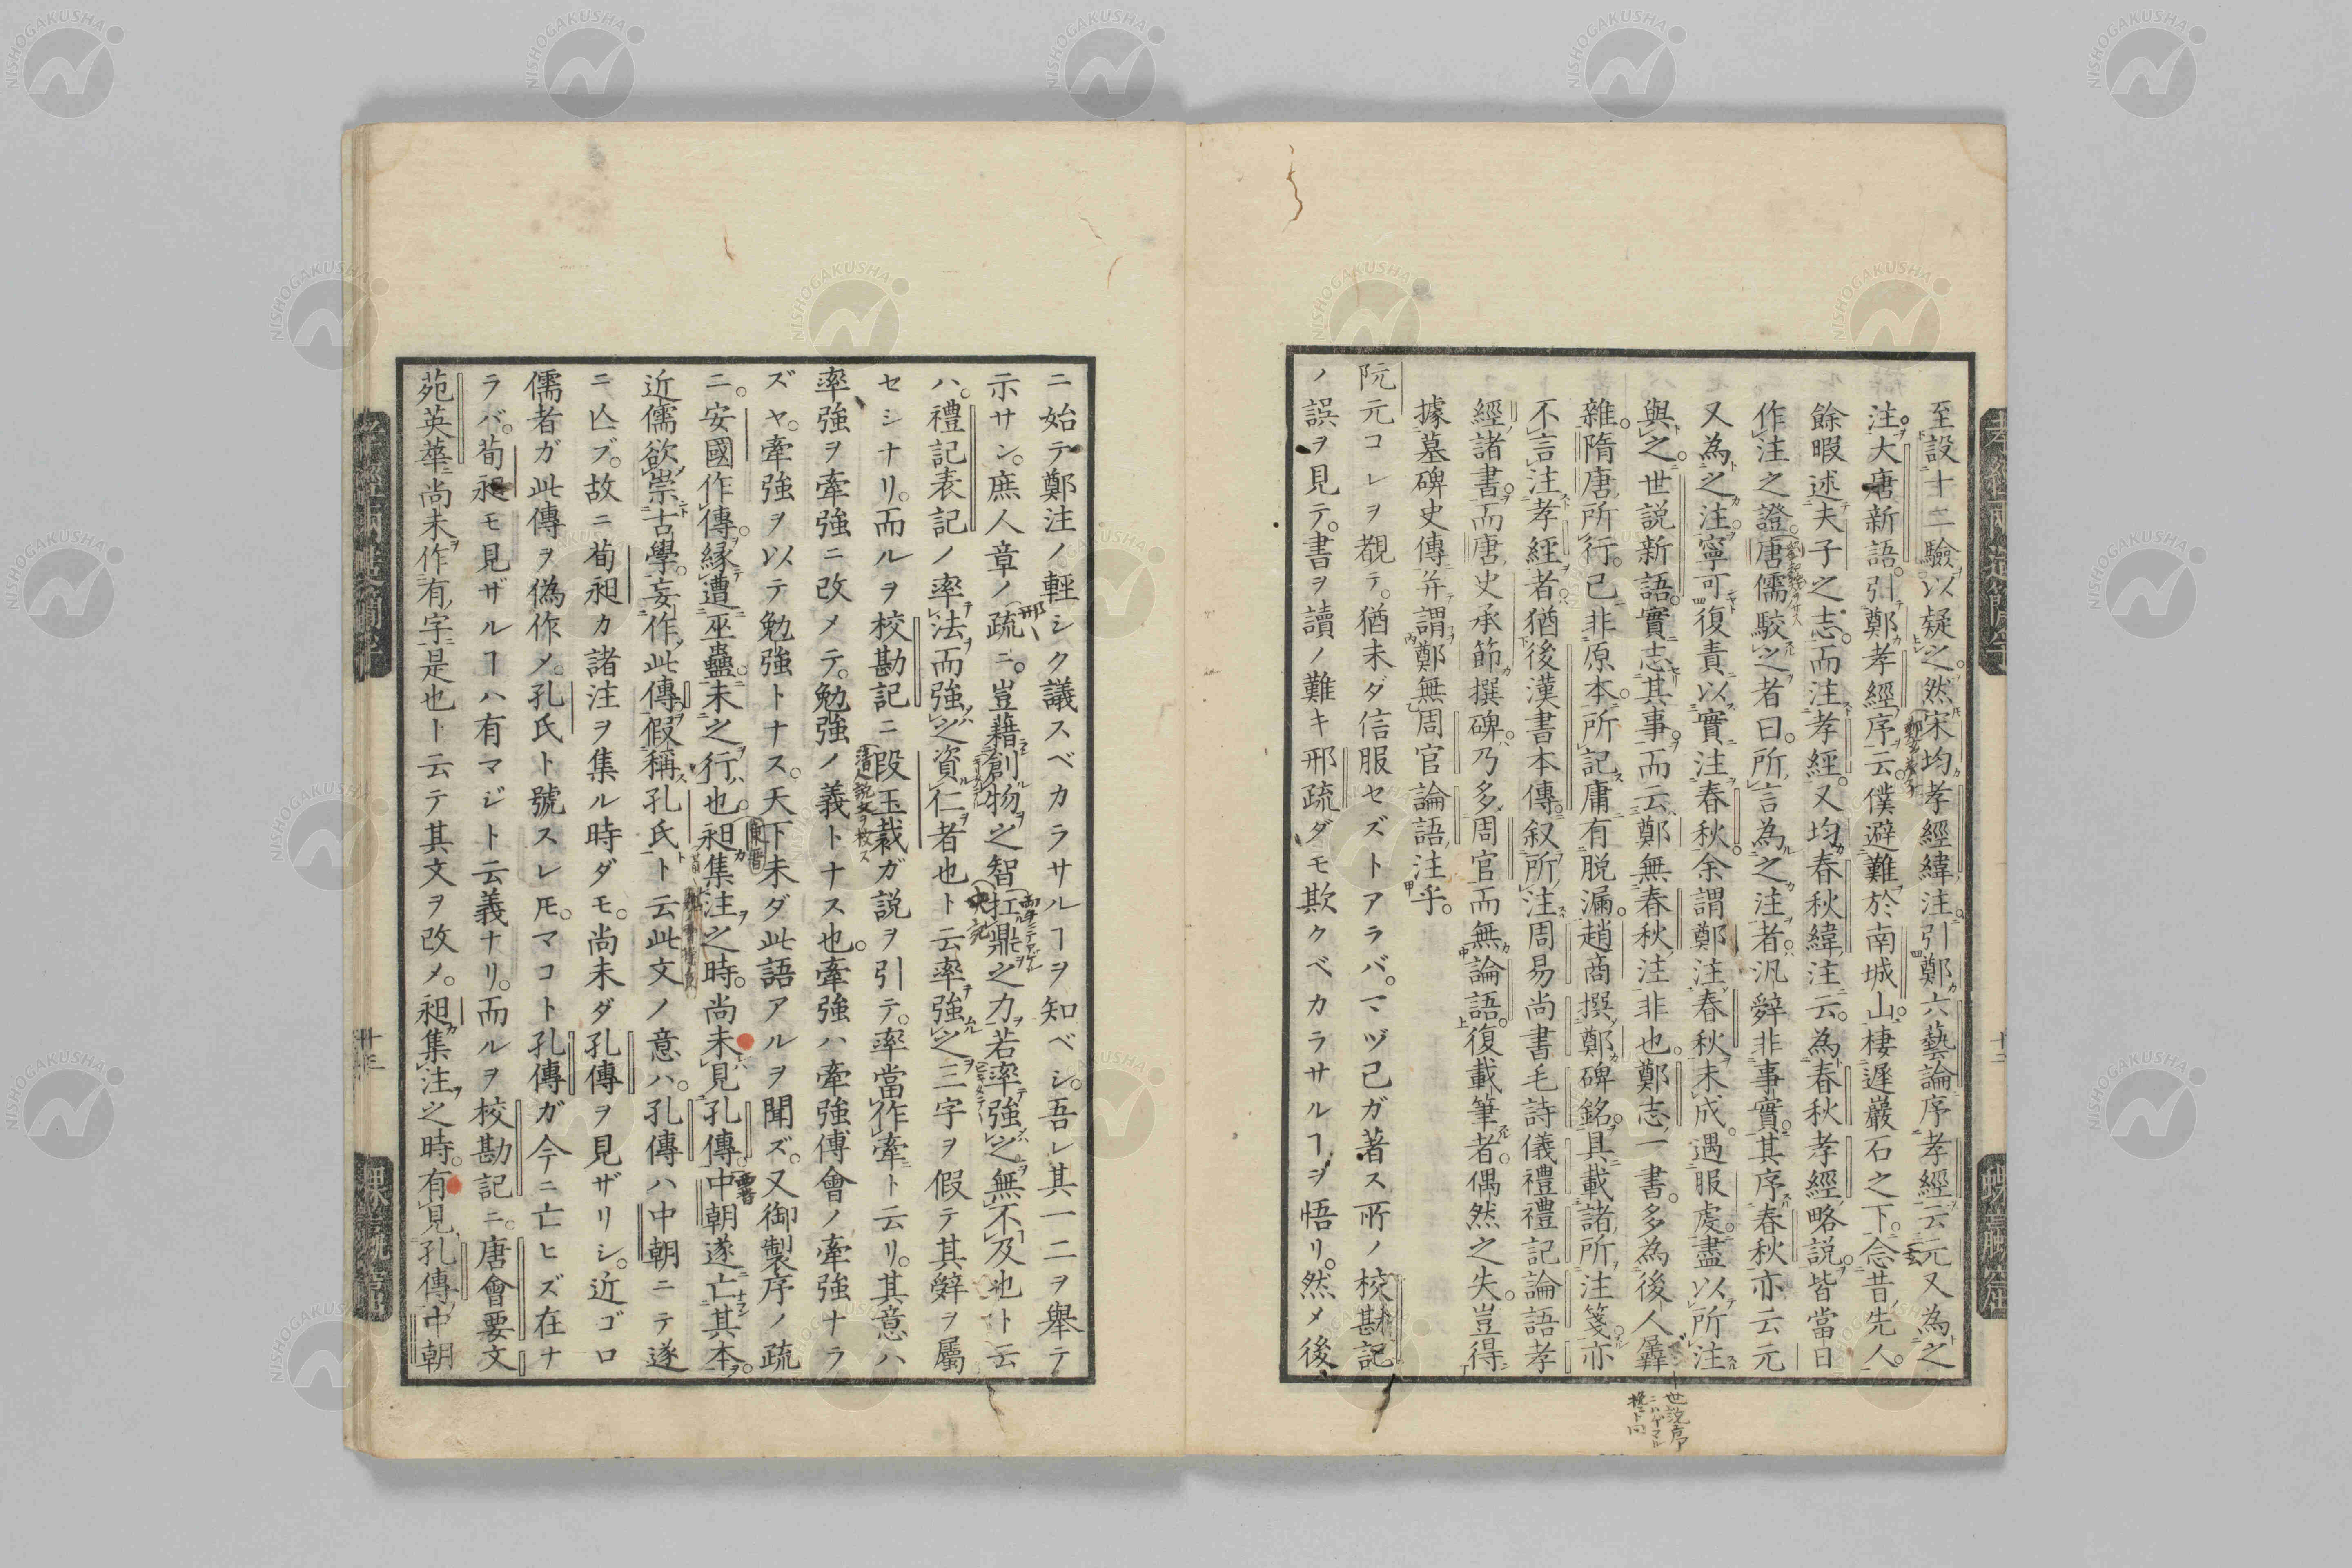 至設十二驗以疑之然宋均孝經緯注引鄭六藝論序孝經云元又為之
注大唐新語引鄭孝經序云僕避難於南城山棲遲巖石之下念昔先人
餘暇述夫子之志而注孝經又均春秋緯注云為春秋孝經略説皆當日
作注之證唐儒駮之者曰所言為之注者汎辤非事實其序春秋亦云元
又為之注寧可復責以實注春秋余謂鄭注春秋未成遇服虔盡以所注
與之世説新語實志其事而云鄭無春秋注非也鄭志一書多為後人羼
雜隋唐所行已非原本所記庸有脱漏趙商撰鄭碑銘具載諸所注箋亦
不言注孝經者猶後漢書本傳叙所注周易尚書毛詩儀禮禮記論語孝
經諸書而唐史承節撰碑乃多周官而無論語復載筆者偶然之失豈得
據墓碑史傳并謂鄭無周官論語注乎
阮元コレヲ覩テ猶未ダ信服セズトアラバマヅ己ガ著ス所ノ校勘記
ノ誤ヲ見テ書ヲ讀ノ難キ邢疏ダモ欺クベカラサルヿヲ悟リ然メ後
世説序
ニ始テ鄭注ノ輕シク議スベカラサルヿヲ知ベシ吾レ其一二ヲ舉テ
示サン庶人章ノ疏ニ豈藉創物之智扛鼎之力若率強之無不及也ト云
ハ禮記表記ノ率法而強之資仁者也ト云率強之三字ヲ假テ其辤ヲ屬
セシナリ而ルヲ校勘記ニ段玉裁ガ説ヲ引テ率當作牽ト云リ其意ハ
率強ヲ牽強ニ改メテ勉強ノ義トナス也牽強ハ牽強傅會ノ牽強ナラ
ズヤ牽強ヲ以テ勉強トナス天下未ダ此語アルヲ聞ズ又御製序ノ疏
ニ安國作傳縁遭巫蠱未之行也昶集注之時尚未見孔傳中朝遂亡其本
近儒欲崇古學妄作此傳假稱孔氏ト云此文ノ意ハ孔傳ハ中朝ニテ遂
ニ亾ブ故ニ荀昶カ諸注ヲ集ル時ダモ尚未ダ孔傳ヲ見ザリシ近ゴロ
儒者ガ此傳ヲ偽作メ孔氏ト號スレ𪜈マコト孔傳ガ今ニ亡ヒズ在ナ
ラバ荀昶モ見ザルヿハ有マジト云義ナリ而ルヲ校勘記ニ唐會要文
苑英華尚未作有字是也ト云テ其文ヲ改メ昶集注之時有見孔傳中朝